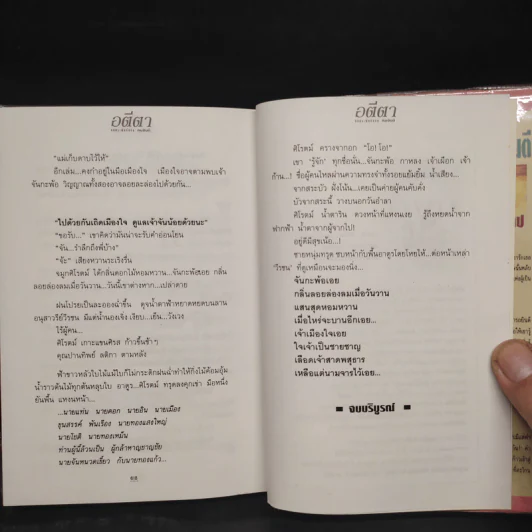 อตีตา
"แม่เก็บดาบไว้ให้"
อีกเล่ม...คงกำอยู่ในมือเมืองใจ เมืองใจอาจตามพบเจ้า
จันกะพ้อ วิญญาณทั้งสองอาจลอยละล่องไปด้วยกัน...
"ไปด้วยกันเถิดเมืองใจ ดูแลเจ้าจันน้อยด้วยนะ"
"ขอรับ..." เขาคิดว่ามันน่าจะรับคำอ่อนโยน
"จัน...รำลึกถึงพี่บ้าง"
"จ้ะ" เสียงหวานระเริงรื่น
จมูกศิโรตม์ ได้กลิ่นดอกไม้หอมหวาน...จันกะพ้อเอย กลิ่น
ลอยล่องลมเมื่อวานวาน...วันนี้เขาต่างหาก...เปล่าดาย
ฝนโปรยเป็นละอองฉ่ำชื้น ดุจน้ำตาฟ้าหยาดหยดบนลาน
อนุสาวรีย์วีรชน มีแต่น้ำนองเจิ่ง เงียบ...เย็น...วังเวง
ไร้ผู้คน...
ศิโรตม์ เกาะแขนศิรส ก้าวขึ้นช้าๆ
คุณปานทิพย์ ลติกา ตามหลัง
ฟ้าขาวหลัวใบไม้แม้ใบก็ไม่กระดิกฝนฉ่ำทำให้กิ่งไม้ค้อมอุ้ม
น้ำราวต้นไม้ทุกต้นหลุบใบ อาดูร...ศิโรตม์ ทรุดลงคุกเข่า มือหนึ่ง
ยันพื้น แหงนหน้า...
...นายแท่น นายดอก นายอิน นายเมือง
ขุนสรรค์ พันเรือง นายทองแสงใหญ่
นายโชติ นายทองเหม็น
ท่านผู้นี้ล้วนเป็น ผู้กล้าหาญชาญชัย
นายจันหนวดเขี้ยว กับนายทองแก้ว...
อตีตา
ศิโรตม์ ครางจากอก "โอ! โอ!"
เขา "รู้จัก" ทุกชื่อนั่น...จันกะพ้อ กาหลง เจ้าเผือก เจ้า
ก้าน...! ชื่อผู้คนไหลผ่านความทรงจำทั้งรอยแย้มยิ้ม น้ำเสียง...
จากสระบัว ฝั่งโน้น...เคยเป็นค่ายผู้คนคับคั่ง
บัวจากสระนี้ วางบนนอกวันอำลา
ศิโรตม์ น้ำตาริน ดวงหน้าที่แหงนเงย รู้ถึงหยดน้ำจาก
ฟากฟ้า น้ำตาจากผู้จากไป!
อยู่ดีมีสุขเน้อ...!
ชายหนุ่มทรุด ซบหน้ากับพื้นอาดูรโดยโหยไห้...ต่อหน้าเหล่า
"วีรชน" ที่ดูเหมือนจะมองนิ่ง...
จันกะพ้อเอย
กลิ่นลอยล่องลมเมื่อวันวาน
แสนสุดหอมหวาน
เมื่อไหร่จะบานอีกเอย...
เจ้าเมืองใจเอย
ใจเจ้าเป็นชายชาญ
เลือดเจ้าสาดพสุธาร
เหลือแต่นามจารไว้เอย...
จบบริบูรณ์